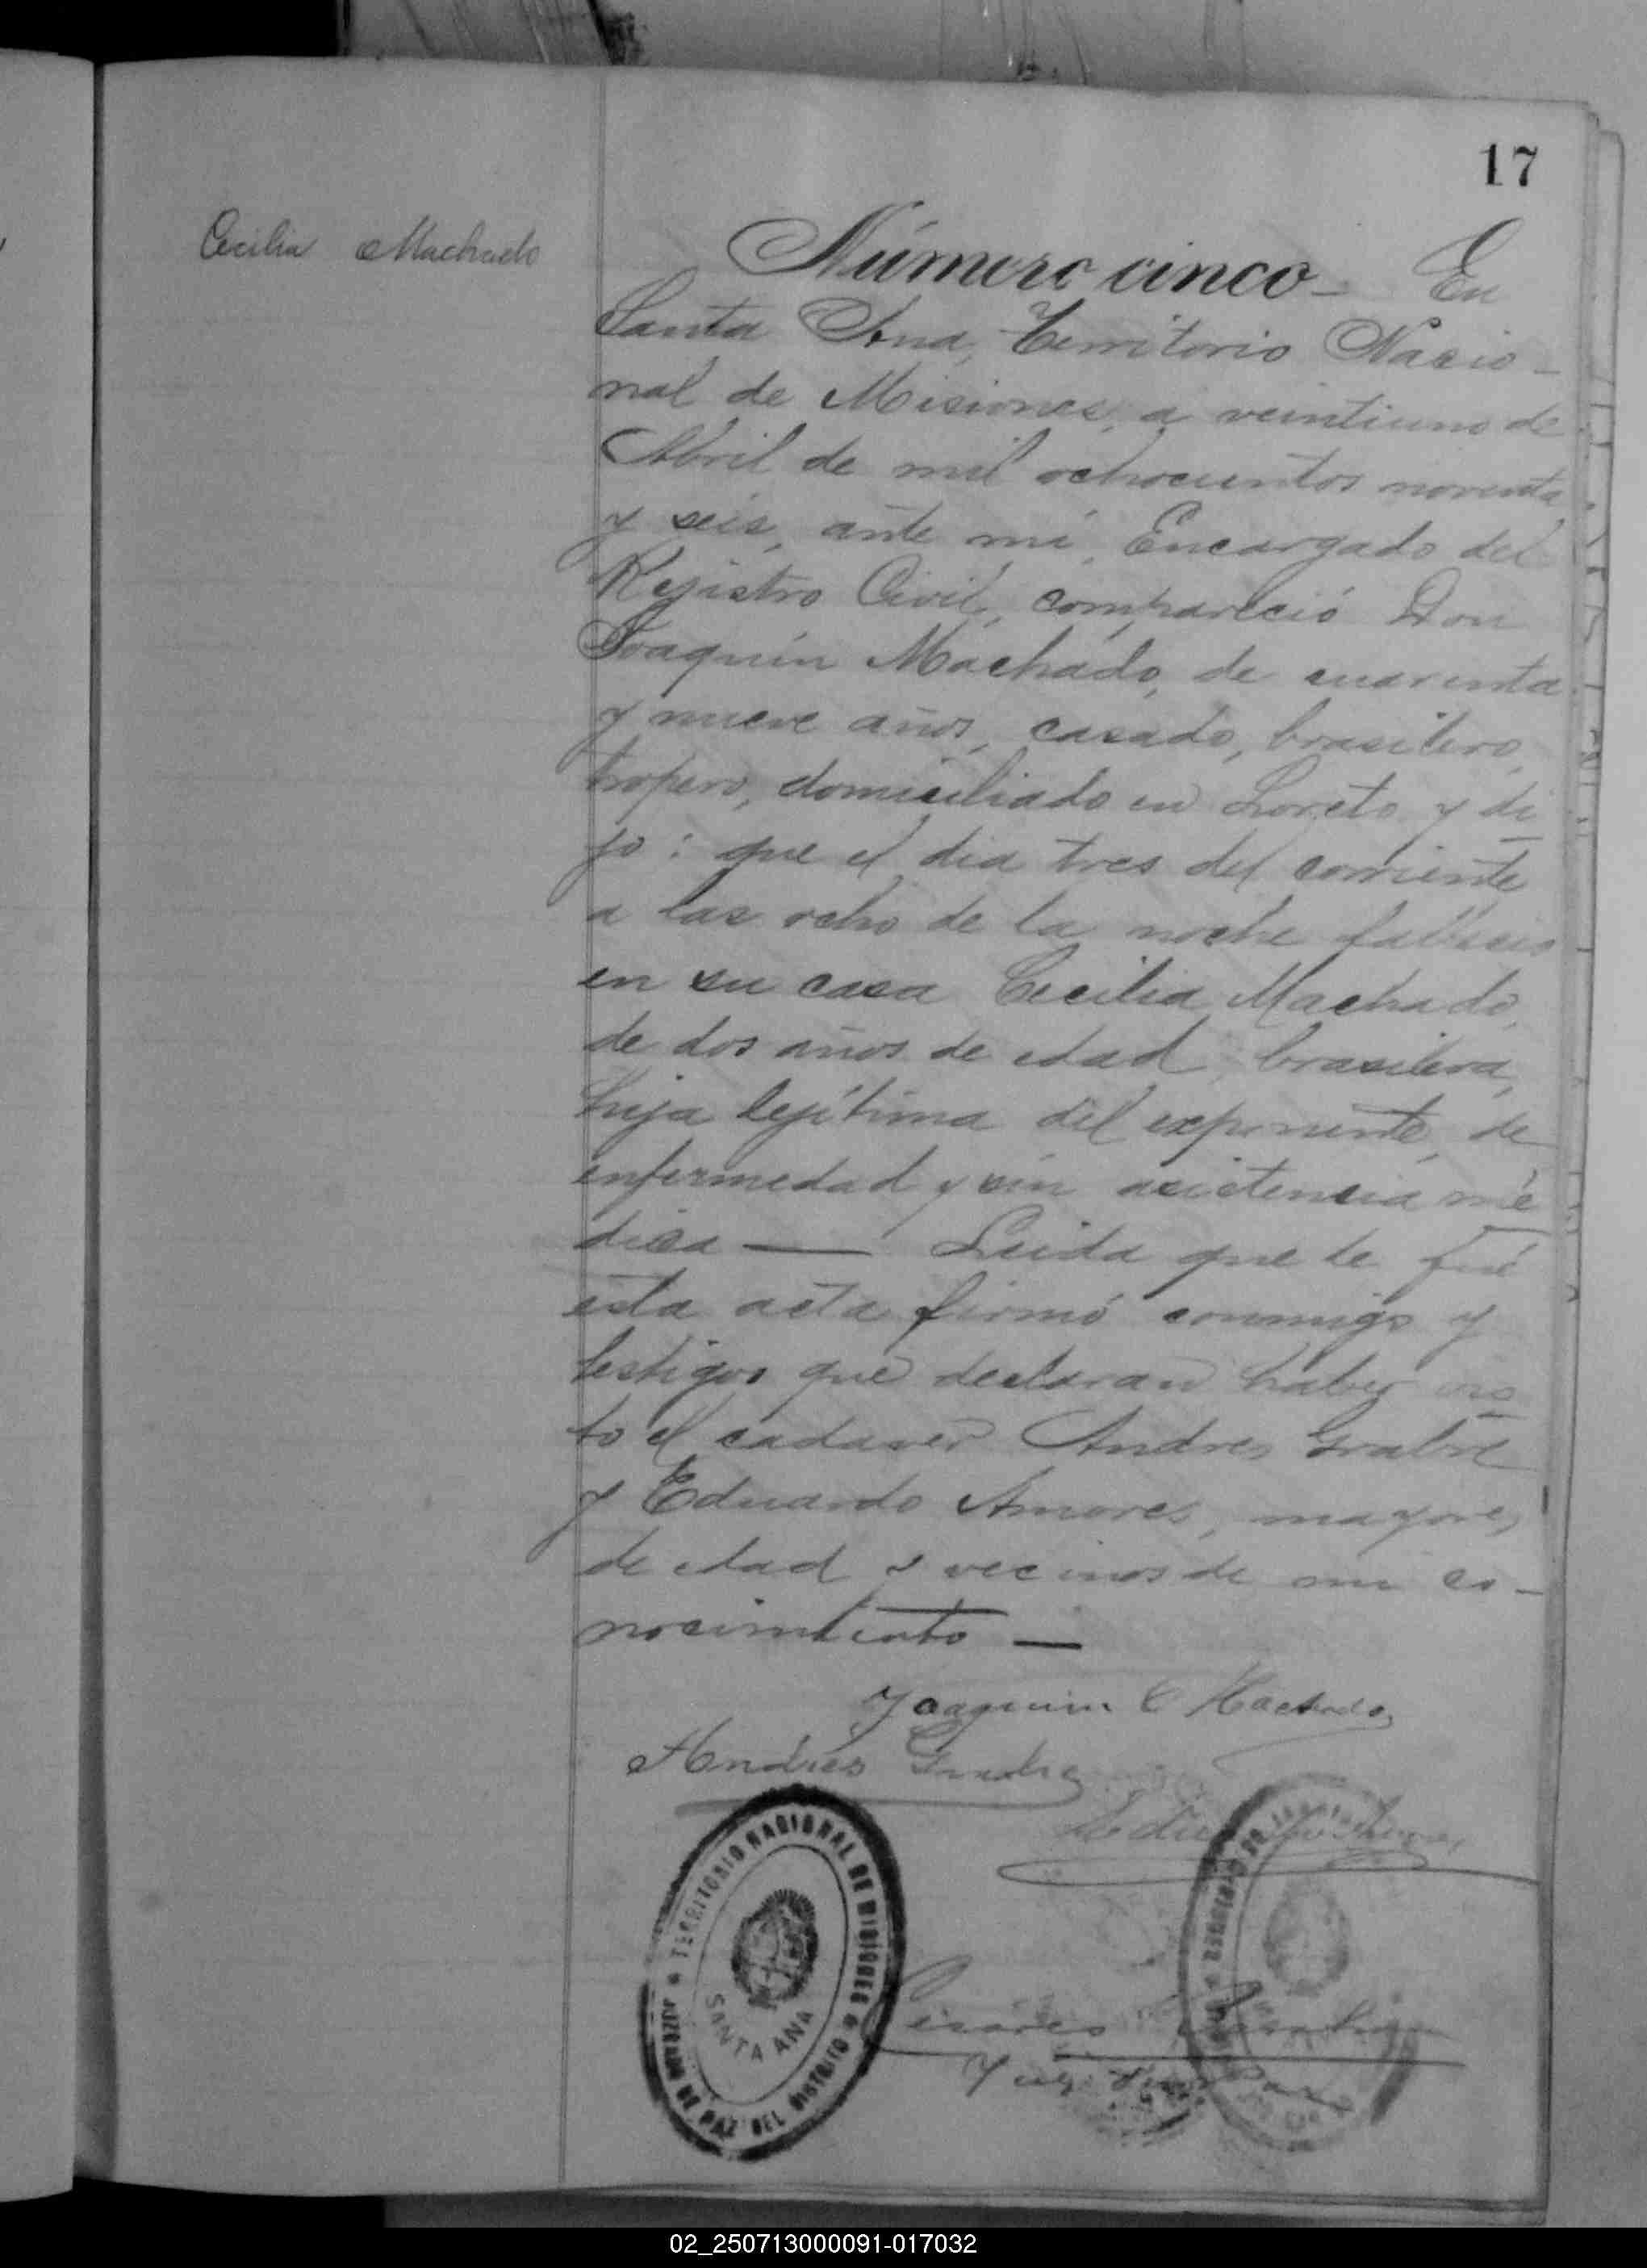 17
Cecilia Machado
Número cinco – En
Santa Ana, Territorio Nacio-
nal de Misiones, a veintiuno de
Abril de mil ochocientos noventa
y seis, ante mí, Encargado del
Rejistro Civil, compareció Don
Joaquín Machado, de cuarenta
y nueve años, casado, brasilero,
tropero, domiciliado en Loreto y di
jo: que el dia tres del corriente
a las ocho de la noche falleció
en su casa Cecilia Machado,
de dos años de edad, brasilera,
hija lejítima del exponente, de
enfermedad y sin asistencia mé
dica — Leida que le fué
esta acta firmó conmigo y
testigos que declaran haber vis
to el cadaver Andres
y Eduardo Amores, mayores
de edad y vecinos de mi co-
nocimiento —
Joaquim C Machado
Andrés
TERRITORIO NACIONAL DE MISIONES
JUZGADO DE PAZ DEL DISTRITO
SANTA ANA
Juez de Paz
02_250713000091-017032